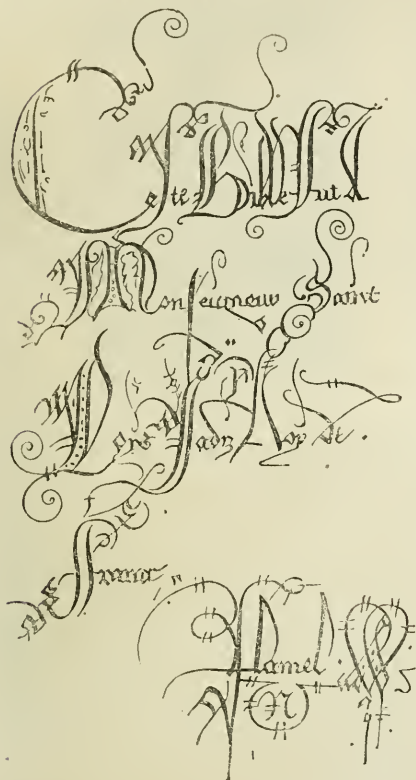 Ceste Bible fut a
Monseigneur Saint
Loys Jadiz Roy de
France
Flamel